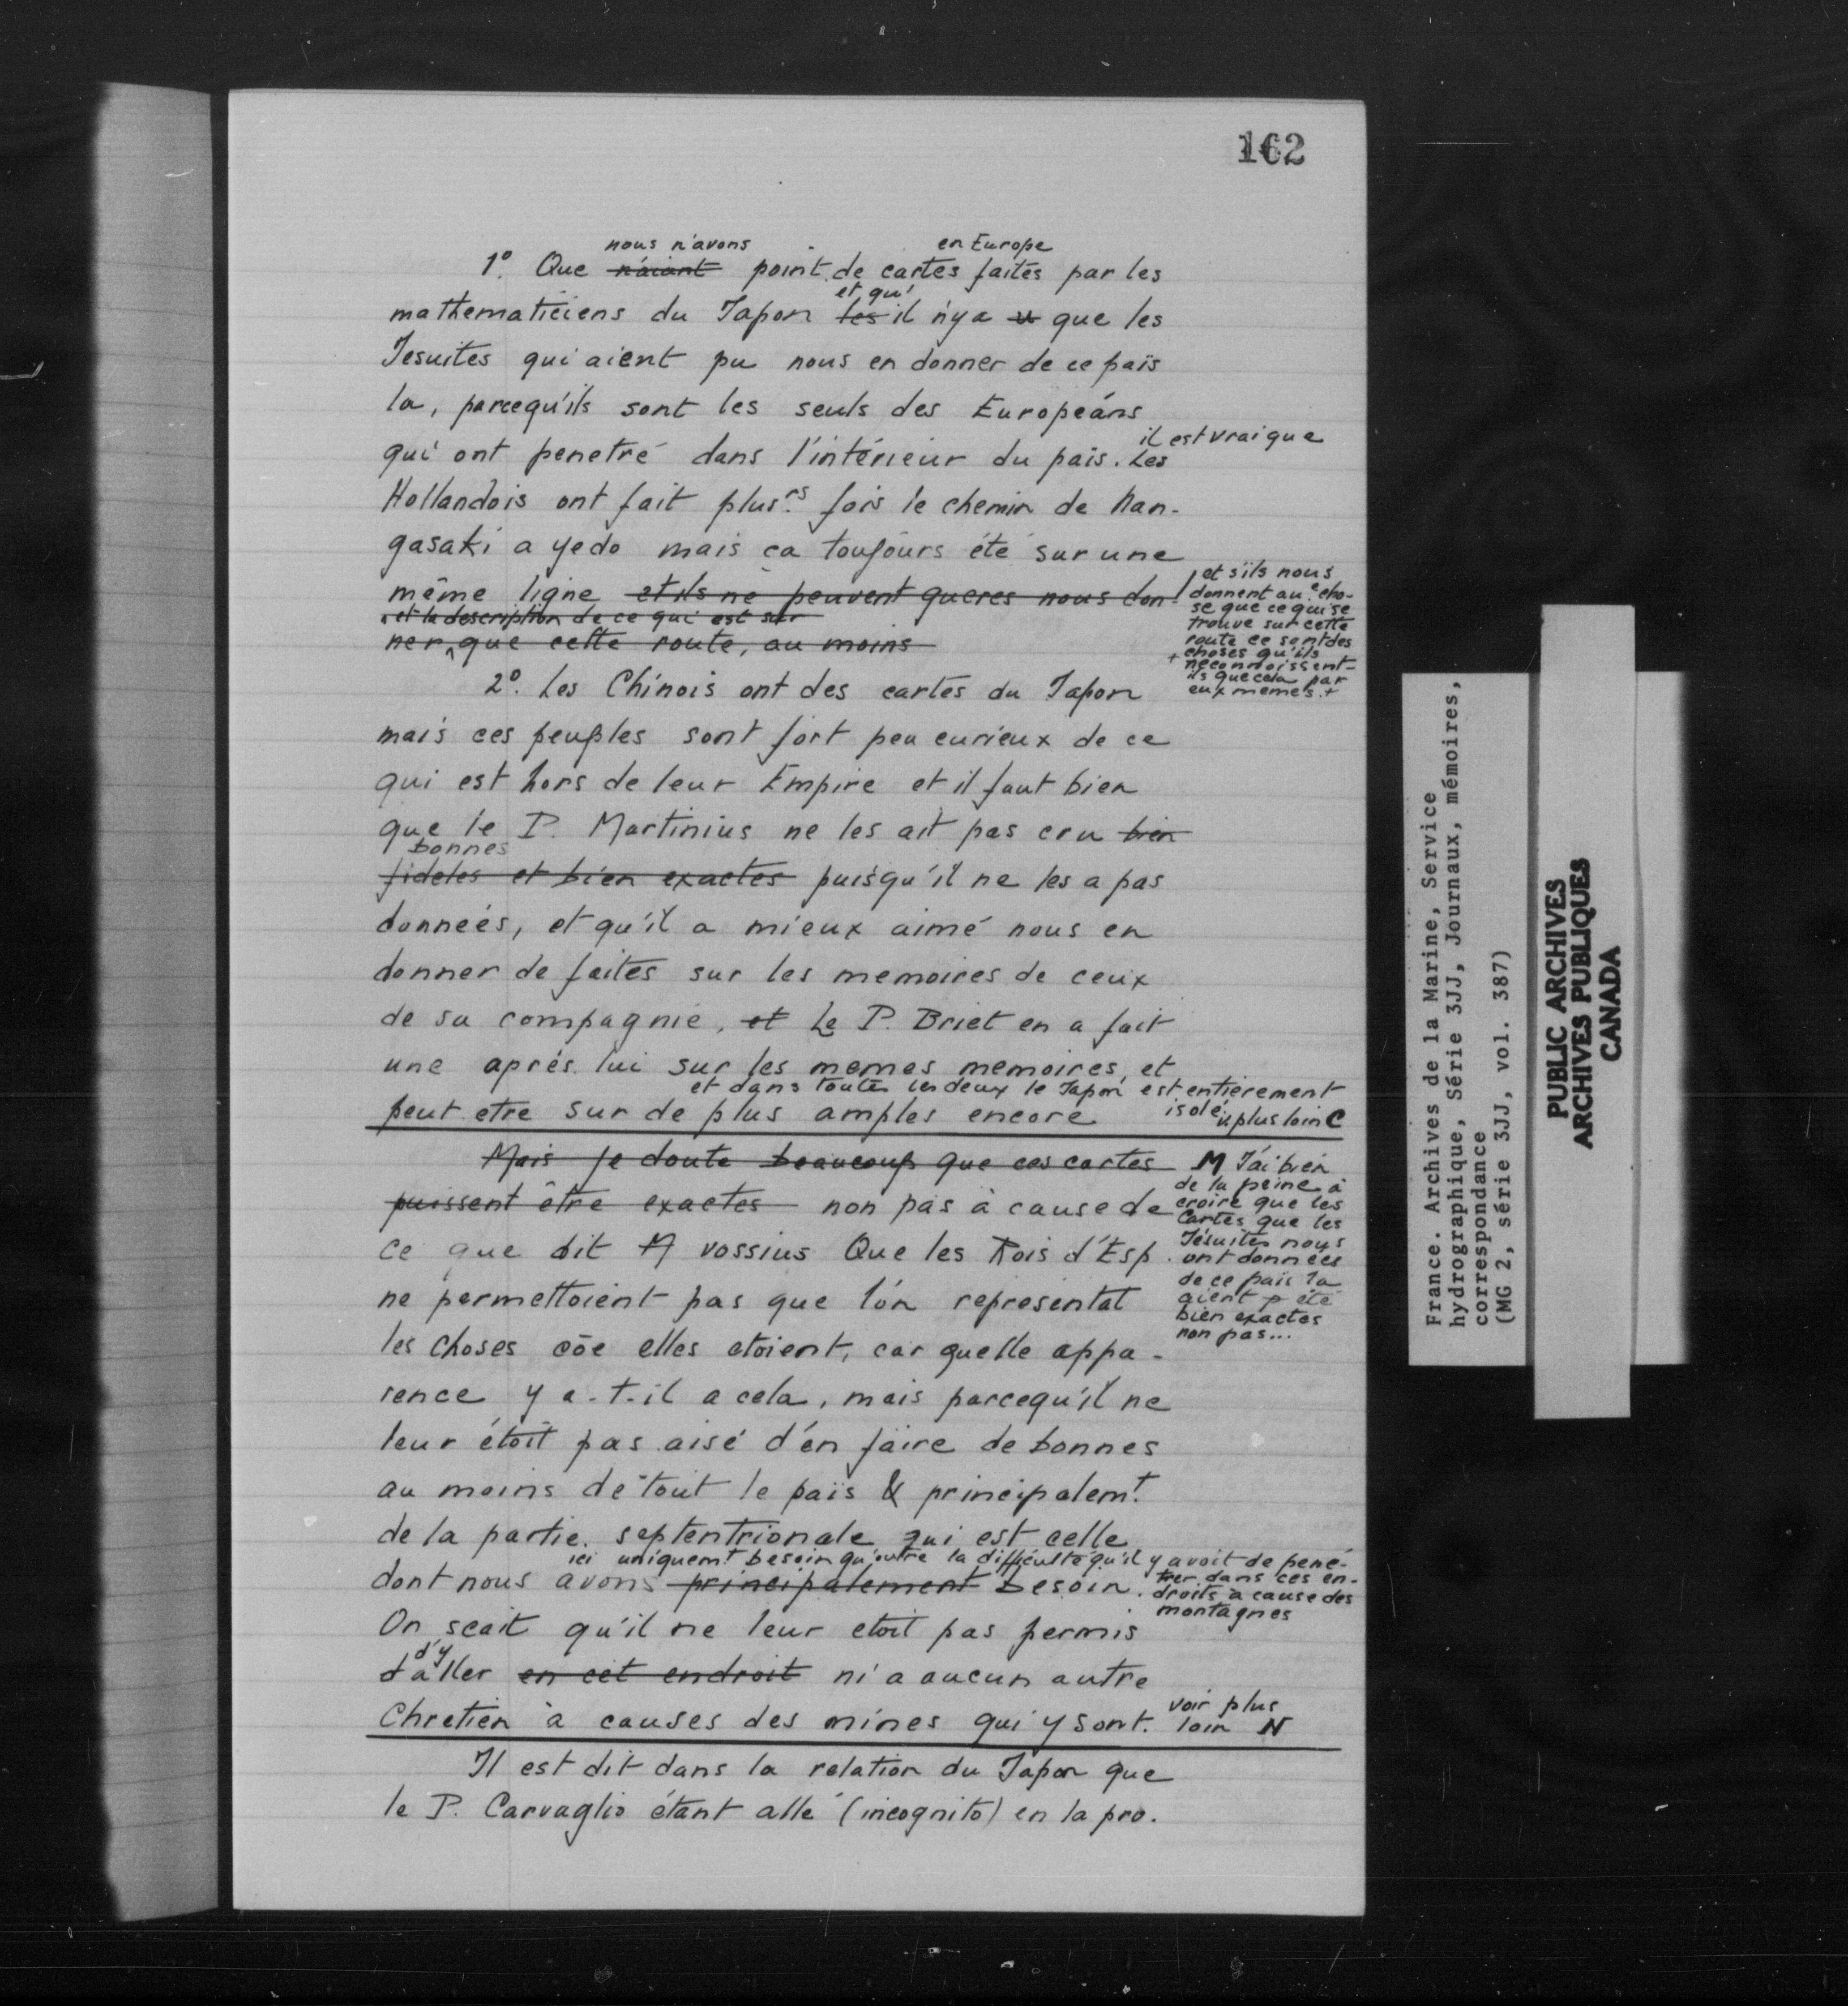 162
nous n'avons en Europe
1º. Que n'aiant point de cartes faites par les
et qu'
mathematiciens du Japon les il n'y a u que les
Jesuites qui aient pu nous en donner de ce païs
la, parcequ'ils sont les seuls des Européans
il est vrai que
qui ont penetré dans l'intérieur du païs. Les
Hollandois ont fait plus.rs fois le chemin de Nan-
gasaki a yedo mais ca toujours été sur une
même ligne et ils ne peuvent gueres nous don-
et la description de ce qui est sur
ner que cette route, au moins
et s'ils nous
donnent au.e cho-
se que ce qui se
trouve sur cette
route ce sont des
+ choses qu'ils
ne connoissent-
ils que cela par
eux memes. +
2º. Les Chinois ont des cartes du Japon
mais ces peuples sont fort peu curieux de ce
qui est hors de leur Empire et il faut bien
que le P. Martinius ne les ait pas cru bien
bonnes
fideles et bien exactes puisqu'il ne les a pas
données, et qu'il a mieux aimé nous en
donner de faites sur les memoires de ceux
de sa compagnie, et Le P. Briet en a fait
une aprés lui sur les memes memoires, et
et dans toutes les deux le Japon est entierement
isolé.
peut etre sur de plus amples encore v. plus loin C
Mais je doute beaucoup que ces cartes
puissent être exactes non pas à cause de
ce que dit M vossius Que les Rois d'Esp.
ne permettoient pas que l'on representat
les choses cõe elles etoient, car quelle appa-
rence y a-t-il a cela, mais parcequ'il ne
M J'ai bien
de la peine à
croire que les
Cartes que les
Jésuites nous
ont données
de ce païs la
aient p été
bien exactes
non pas...
leur étoit pas aisé d'en faire de bonnes
au moins de tout le païs & principalem.t
de la partie septentrionale qui est celle
ici uniquem.t besoin qu'outre la difficulté qu'il y avoit de pené-
dont nous avons principalement besoin.
trer dans ces en-
droits à cause des
montagnes
On scait qu'il ne leur etoit pas permis
d'y
d'aller en cet endroit ni a aucun autre
Chretien à causes des mines qui y sont. voir plus
loin N
Il est dit dans la relation du Japon que
le P. Carvaglio étant allé (incognito) en la pro.
France. Archives de la Marine, Service
hydrographique, Série 3JJ, Journaux, mémoires,
correspondance
(MG 2, série 3JJ, vol. 387)
PUBLIC ARCHIVES
ARCHIVES PUBLIQUES
CANADA